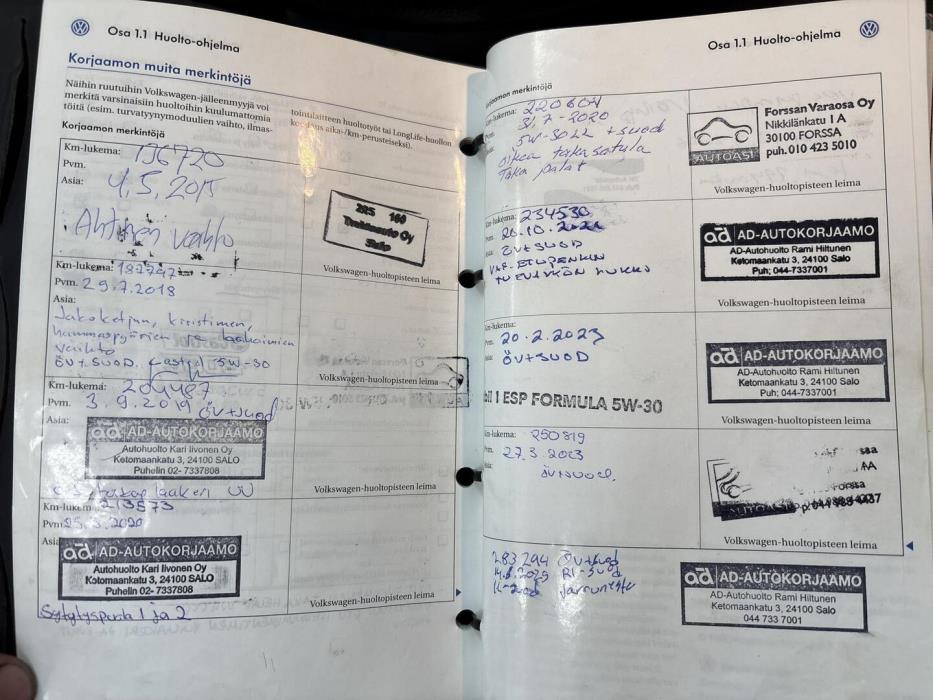 Osa 1.1 Huolto-ohjelma
Korjaamon muita merkintöjä
Näihin ruutuihin Volkswagen-jälleenmyyjä voi
merkitä varsinaisiin huoltoihin kuulumattomia
töitä (esim. turvatyynymoduulien vaihto, ilmas-
tointilaitteen huoltotyöt tai LongLife-huollon
korjaus aika-/km-perusteiseksi).
Korjaamon merkintöjä
Km-lukema: 136720
Pvm. 4.5.2015
Asia:
vaihto
Salo
Volkswagen-huoltopisteen leima
Km-lukema: 187747
Pvm. 29.7.2018
Asia:
Jakoketjun, kiristimen,
hammaspyörien ja
vaihto
ÖV+SUOD. Castrol 5W-30
Volkswagen-huoltopisteen leima
Km-lukema: 204487
Pvm. 3 9.2019 ÖV+suod
Asia:
ad AD-AUTOKORJAAMO
Autohuolto Kari Iivonen Oy
Ketomaankatu 3, 24100 SALO
Puhelin 02- 7337808
laakeri
Volkswagen-huoltopisteen leima
Km-lukema: 213573
Pvm 25.3.2020
Asia:
ad AD-AUTOKORJAAMO
Autohuolto Kari Iivonen Oy
Ketomaankatu 3, 24100 SALO
Puhelin 02- 7337808
Volkswagen-huoltopisteen leima
Sytytyspuola 1 ja 2
Osa 1.1 Huolto-ohjelma
Korjaamon merkintöjä
220604
31.7-2020
5W-30 + suod
oikea taka satula
Taka palat
AUTOASI
Forssan Varaosa Oy
Nikkilänkatu 1 A
30100 FORSSA
puh. 010 423 5010
Volkswagen-huoltopisteen leima
Km-lukema: 234530
Pvm. 20.10.2021
Asia: ÖV+SUOD
VAS. ETUPENKIN
ad AD-AUTOKORJAAMO
AD-Autohuolto Rami Hiltunen
Ketomaankatu 3, 24100 Salo
Puh; 044-7337001
Volkswagen-huoltopisteen leima
Km-lukema:
20.2.2023
ÖV+SUOD
ESP FORMULA 5W-30
ad AD-AUTOKORJAAMO
AD-Autohuolto Rami Hiltunen
Ketomaankatu 3, 24100 Salo
Puh; 044-7337001
Volkswagen-huoltopisteen leima
Km-lukema: 250819
Pvm. 27.3.2023
Asia: öv+suod.
AUTOASI
Forssa
Volkswagen-huoltopisteen leima
283294 ÖV+suod
jarruneste
ad AD-AUTOKORJAAMO
AD-Autohuolto Rami Hiltunen
Ketomaankatu 3, 24100 Salo
044 733 7001